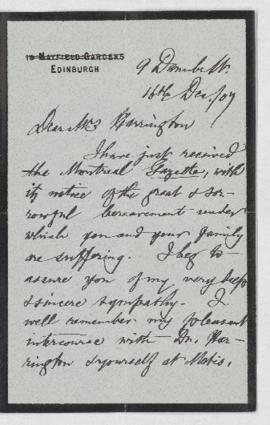 19 MAYFIELD GARDENS
EDINBURGH
9 Danube St.
16th Dec./07
Dear Mrs Harrington
I have just received
the Montreal Gazette, with
its notice of the great & sor-
rowful bereavement under
which you and your family
are suffering. I beg to
assure you of my very deep
& sincere sympathy. I
well remember my pleasant
intercourse with Dr. Har-
rington & yourself at Metis,